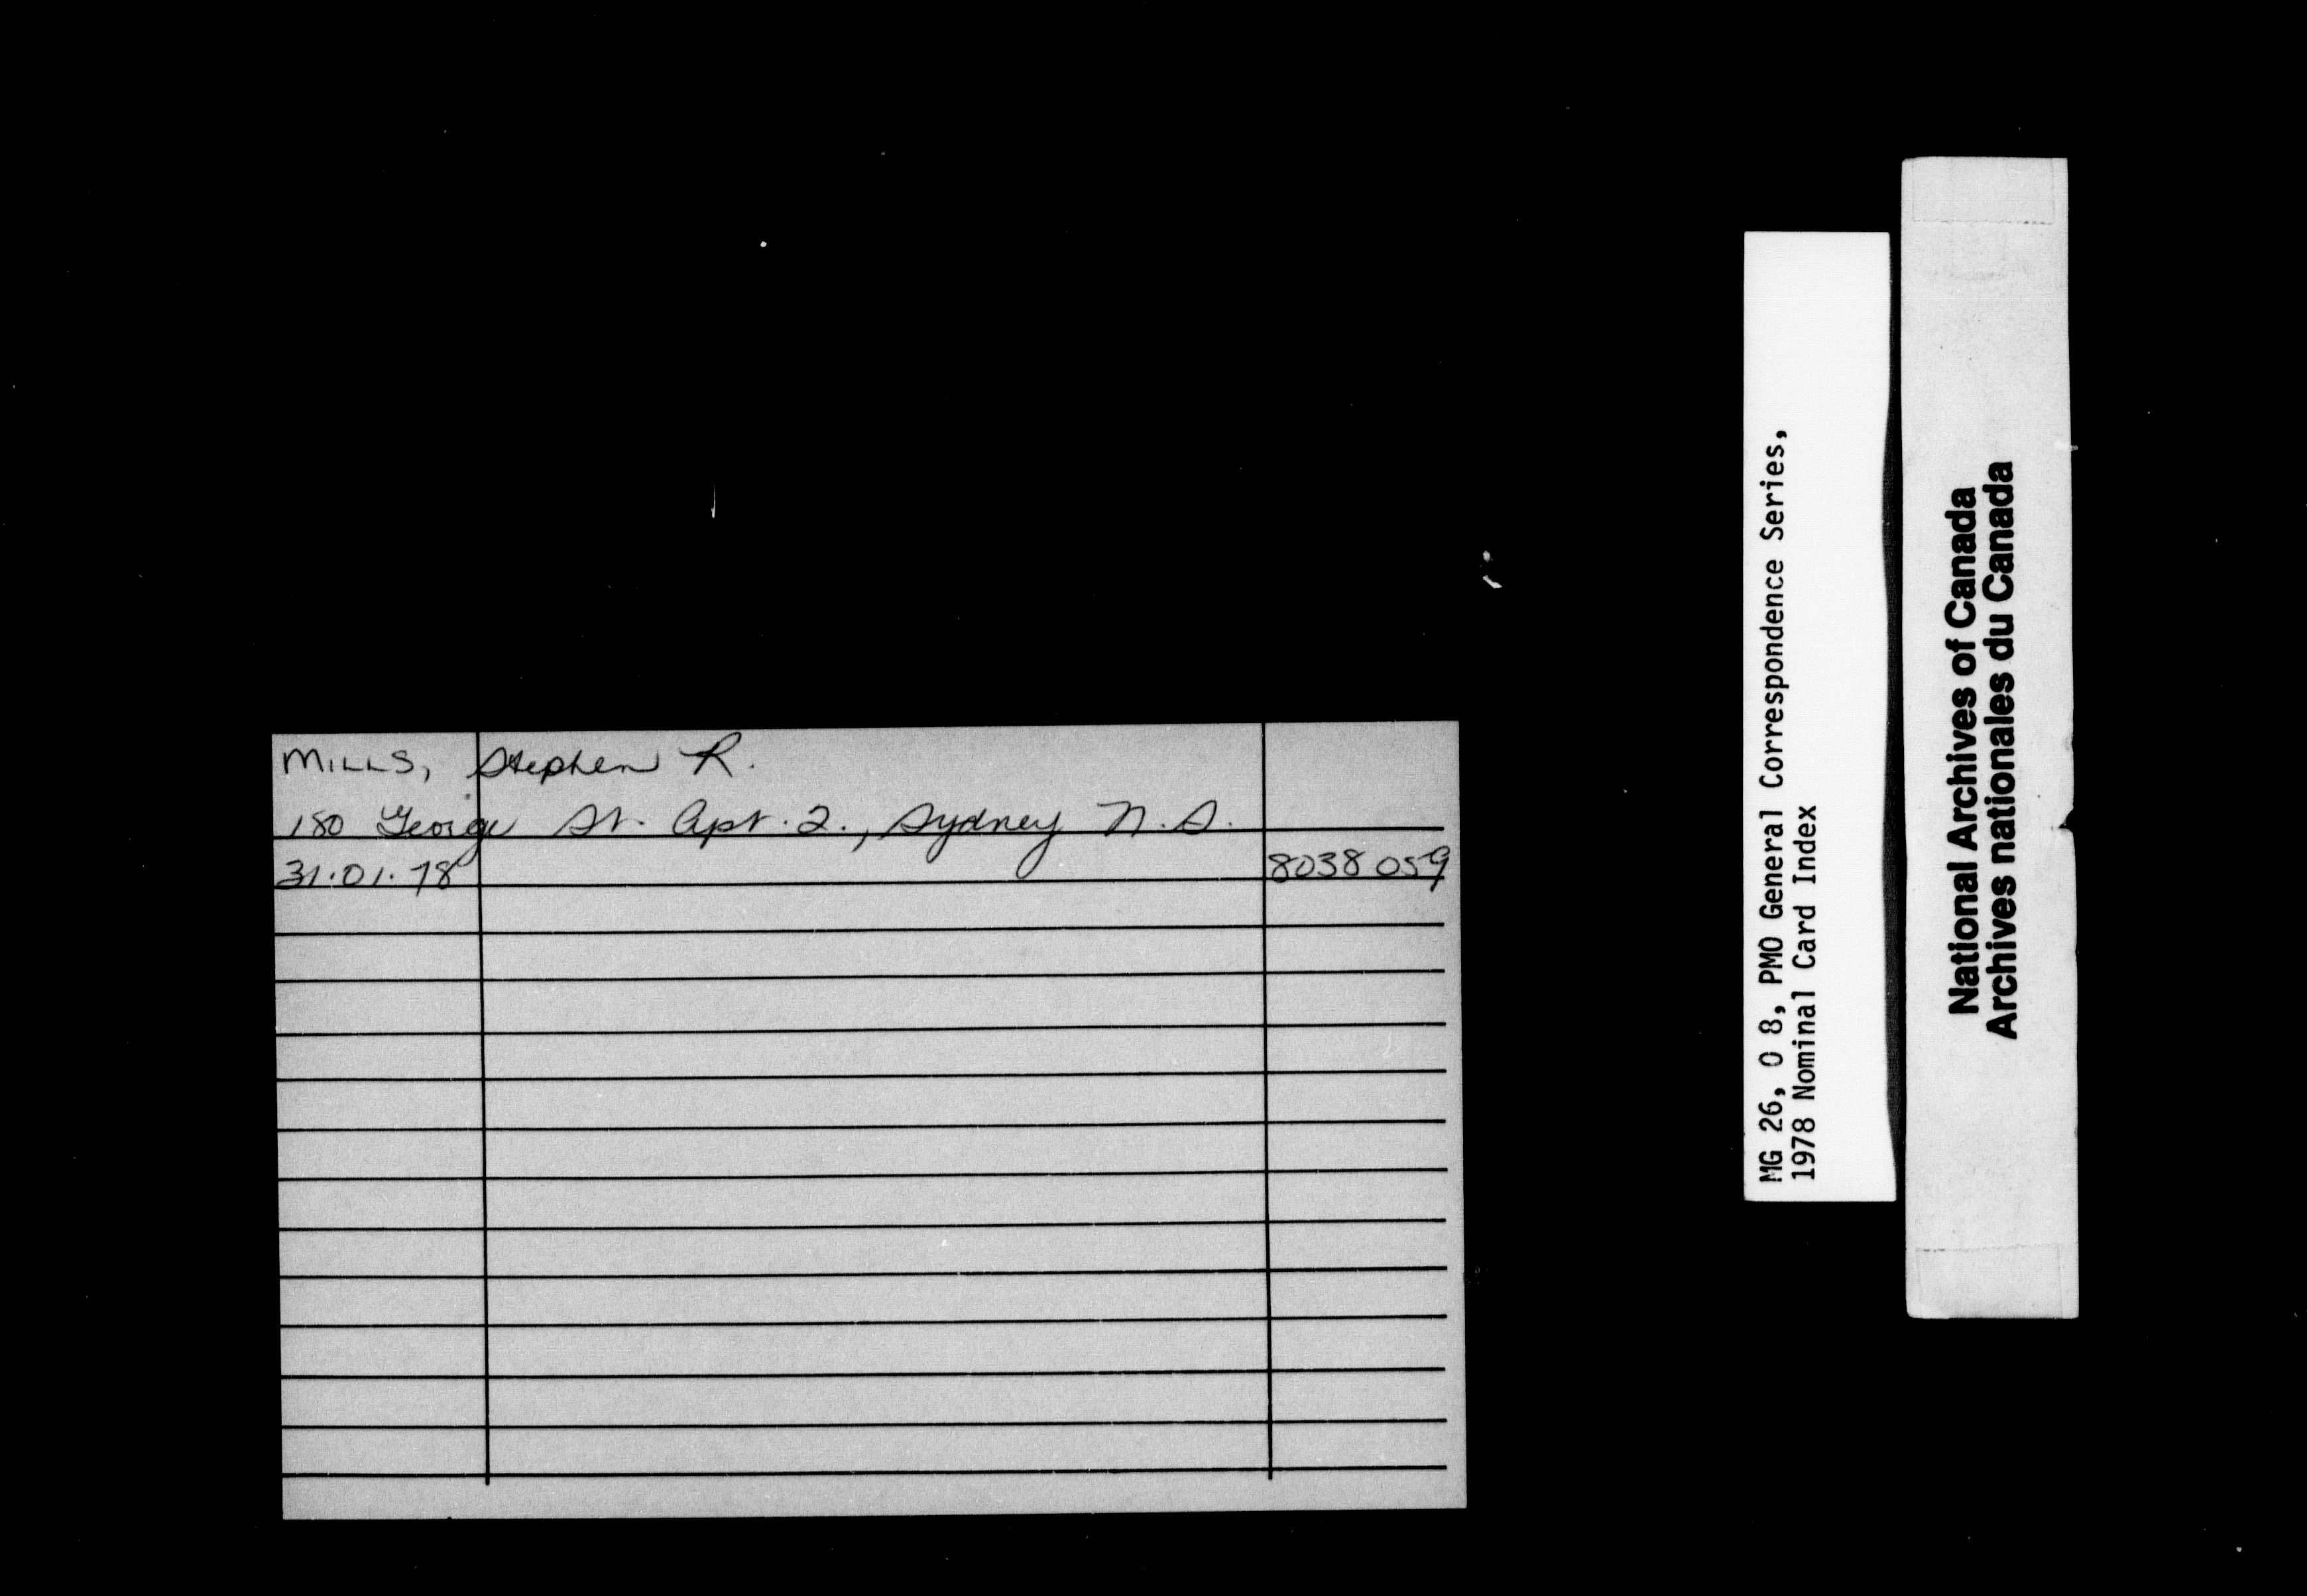 MILLS, Stephen R.
180 George St. Apt. 2., Sydney N.S.
31.01.78 8038 059
MG 26, O 8, PMO General Correspondence Series,
1978 Nominal Card Index
National Archives of Canada
Archives nationales du Canada